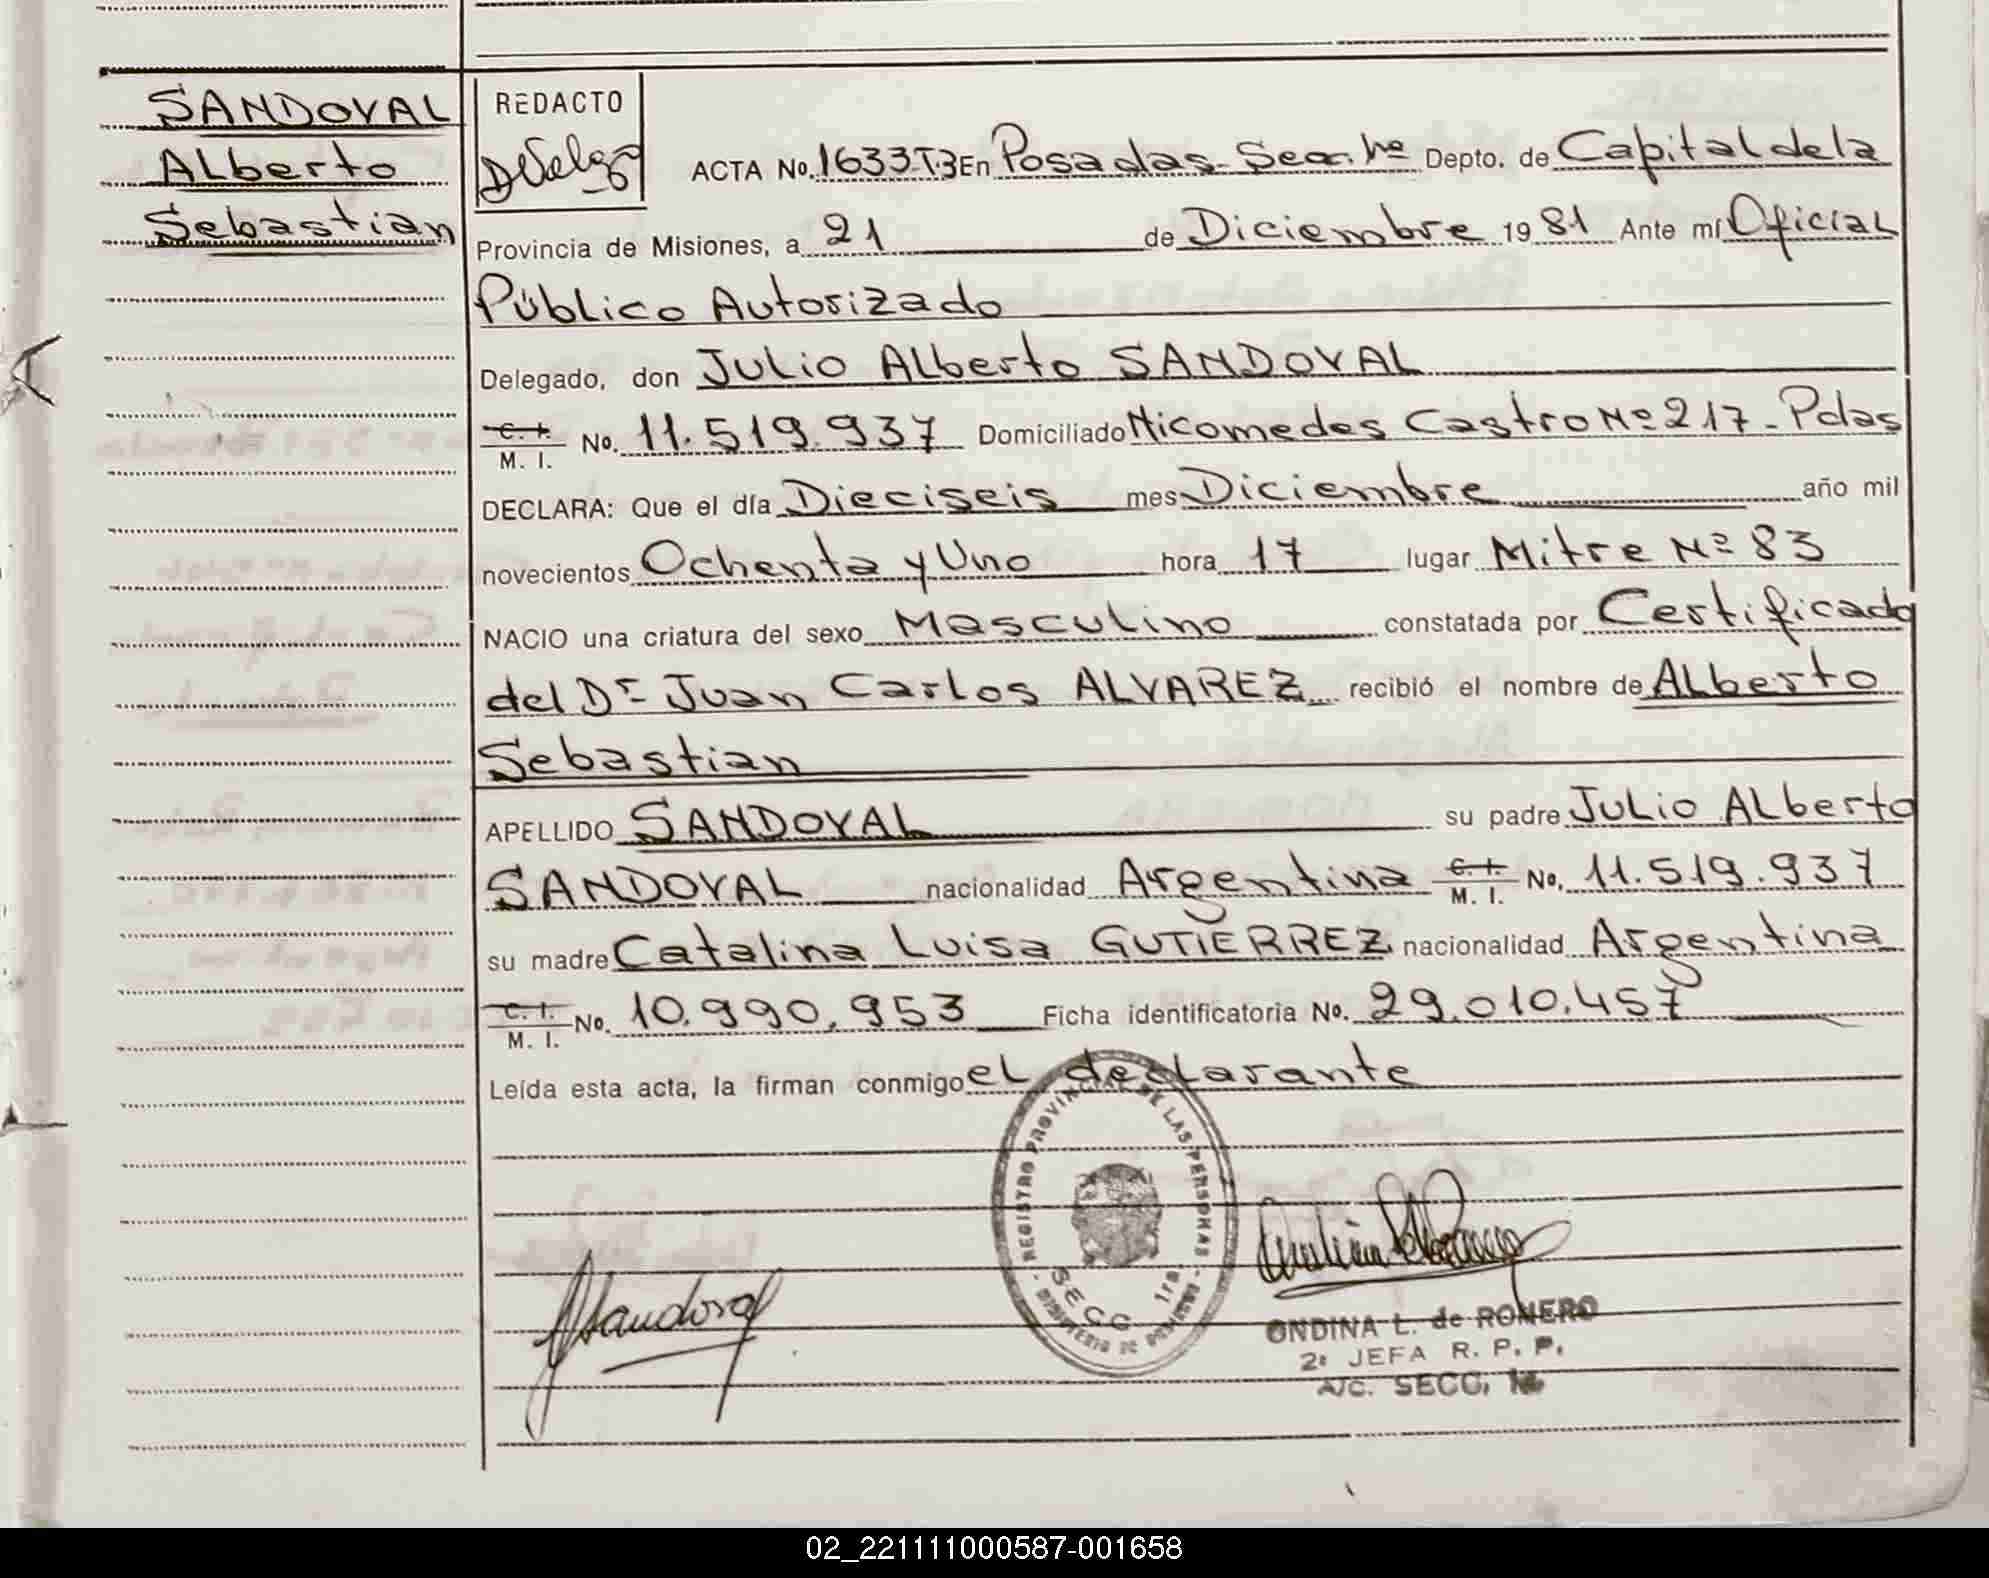 SANDOVAL
Alberto
Sebastian
REDACTO
ACTA No. 1633-T.3 En Posadas-Secc. 1ª Depto. de Capital de la
Provincia de Misiones, a 21 de Diciembre 19 81 Ante mí Oficial
Público Autorizado
Delegado, don Julio Alberto SANDOVAL
C. I.
M. I. No. 11.519.937 Domiciliado Nicomedes Castro Nº 217 - Pdas
DECLARA: Que el día Dieciseis mes Diciembre año mil
novecientos Ochenta y Uno hora 17 lugar Mitre Nº 83
NACIO una criatura del sexo Masculino constatada por Certificado
del Dr Juan Carlos ALVAREZ recibió el nombre de Alberto
Sebastian
APELLIDO SANDOVAL su padre Julio Alberto
SANDOVAL nacionalidad Argentina C. I. M. I. No. 11.519.937
su madre Catalina Luisa GUTIERREZ nacionalidad Argentina
C. I.
M. I. No. 10.990.953 Ficha identificatoria No. 29.010.457
Leída esta acta, la firman conmigo el declarante
REGISTRO PROVINCIAL DE LAS PERSONAS
SECC 1ra
MINISTERIO DE GOBIERNO
Sandoval
ONDINA L. de ROMERO
2ª JEFA R. P. P.
A/C. SECC. 1ª
02_221111000587-001658